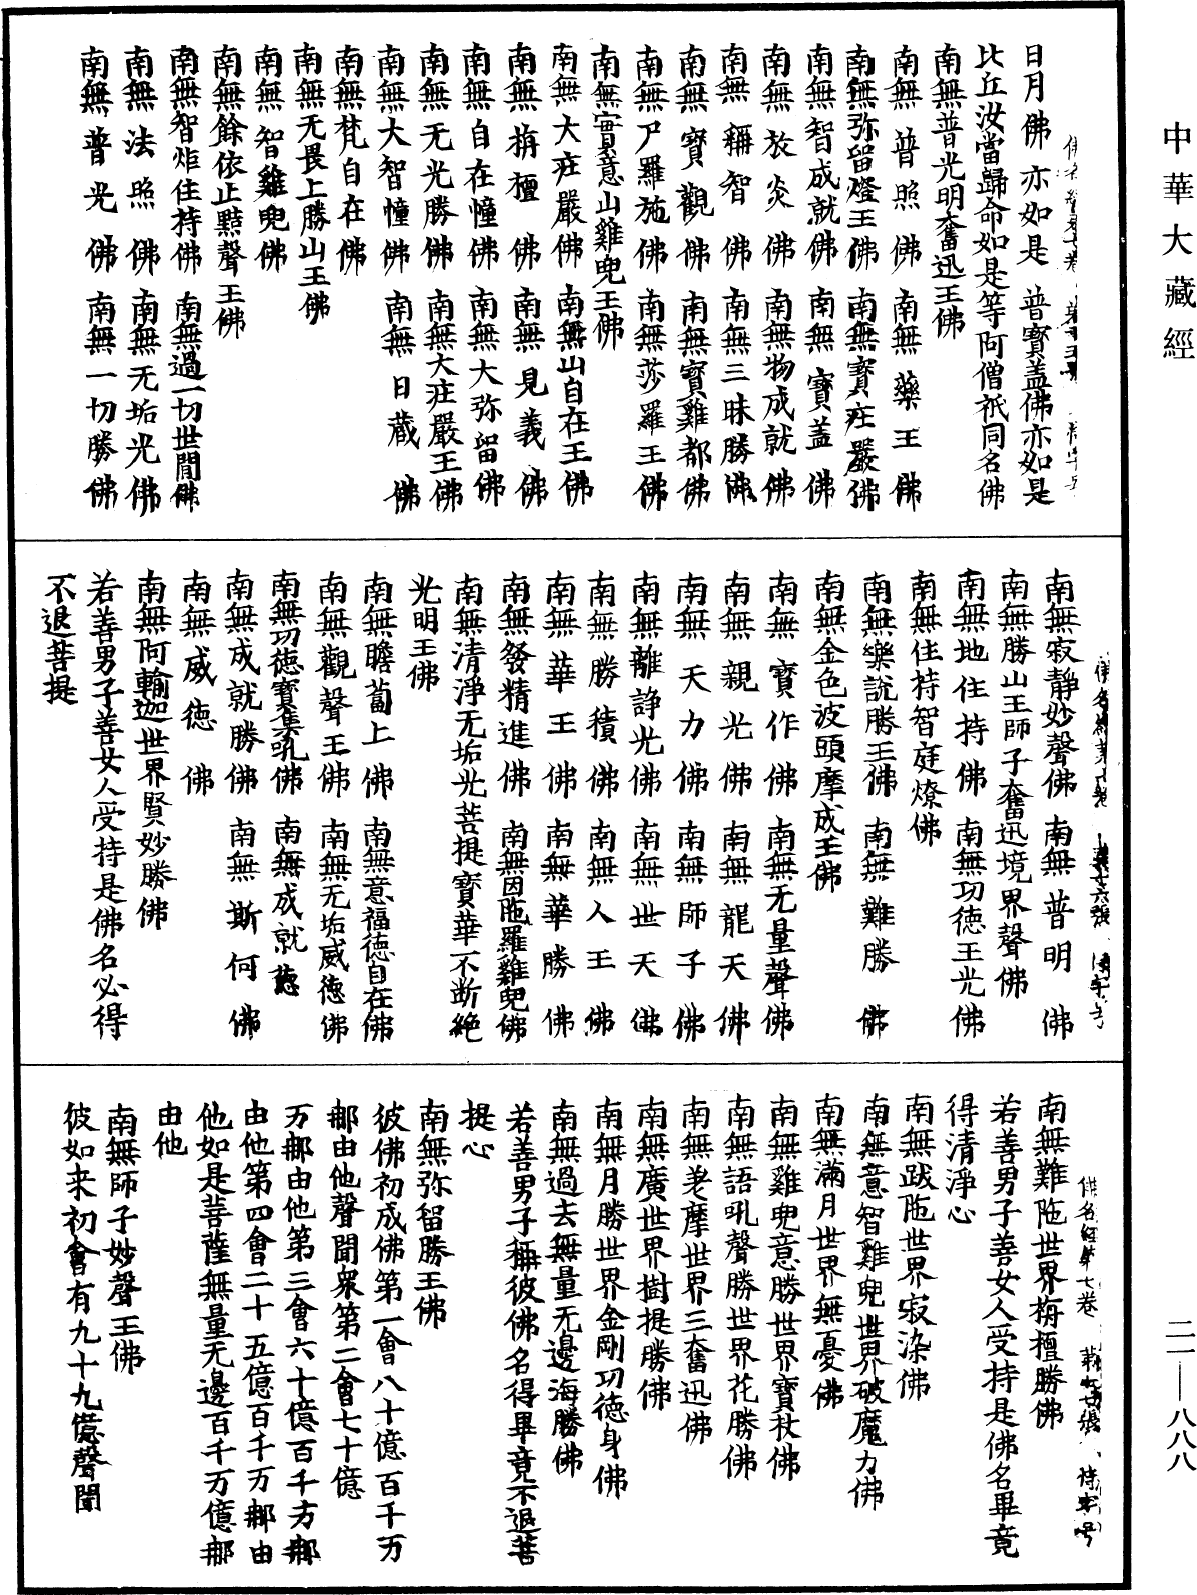 中華大藏經
日月佛亦如是 普寶盖佛亦如是
比丘汝當歸命如是等阿僧祇同名佛
南無普光明奮迅王佛
南無普照佛 南無藥王佛
南無弥留燈王佛 南無寶疘嚴佛
南無智成就佛 南無寶盖佛
南無炎佛 南無物成就佛
南無稱智佛 南無三昧勝佛
南無寶觀佛 南無寶雞都佛
南無尸羅施佛 南無莎羅王佛
南無實意山雞兜王佛
南無大疘嚴佛 南無山自在王佛
南無栴檀佛 南無見義佛
南無自在幢佛 南無大弥留佛
南無无光勝佛 南無大疘嚴王佛
南無大智幢佛 南無日藏佛
南無梵自在佛
南無无畏上勝山王佛
南無智雞兜佛
南無餘依止㸃聲王佛
南無智炬住持佛 南無過一切世間佛
南無法照佛 南無无垢光佛
南無普光佛 南無一切勝佛
南無寂靜妙聲佛 南無普明佛
南無勝山王師子奮迅境界聲佛
南無地住持佛 南無功德王光佛
南無住持智庭燎佛
南無樂說勝王佛 南無難勝佛
南無金色波頭摩成王佛
南無寶作佛 南無无量聲佛
南無親光佛 南無龍天佛
南無天力佛 南無師子佛
南無離諍光佛 南無世天佛
南無勝積佛 南無人王佛
南無華王佛 南無華勝佛
南無發精進佛 南無因陁羅雞兜佛
南無清淨无垢光菩提寶華不断絶
光明王佛
南無瞻蔔上佛 南無意福德自在佛
南無觀聲王佛 南無无垢威德佛
南無功德寶集吼佛 南無成就
南無成就勝佛 南無斯何佛
南無威德佛
南無阿輸迦世界賢妙勝佛
若善男子善女人受持是佛名必得
不退菩提
南無難陁世界栴檀勝佛
若善男子善女人受持是佛名畢竟
得清淨心
南無跋陁世界寂染佛
南無意智雞兜世界破魔力佛
南無滿月世界無憂佛
南無雞兜意勝世界寶杖佛
南無語吼聲勝世界花勝佛
南無老摩世界三奮迅佛
南無廣世界樹提勝佛
南無月勝世界金剛功德身佛
南無過去無量无邊海勝佛
若善男子稱彼佛名得畢竟不退菩
提心
南無弥留勝王佛
彼佛初成佛第一會八十億百千万
那由他聲聞衆第二會七十億
万那由他第三會六十億百千万那
由他第四會二十五億百千万那由
他如是菩薩無量无邊百千万億那
由他
南無師子妙聲王佛
彼如来初會有九十九億聲聞
二一—八八八